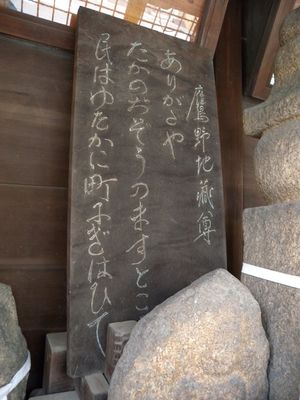 鷹野地藏尊
ありがたや
たかのぢぞうのますとこ
民はゆたかに町にぎはひて